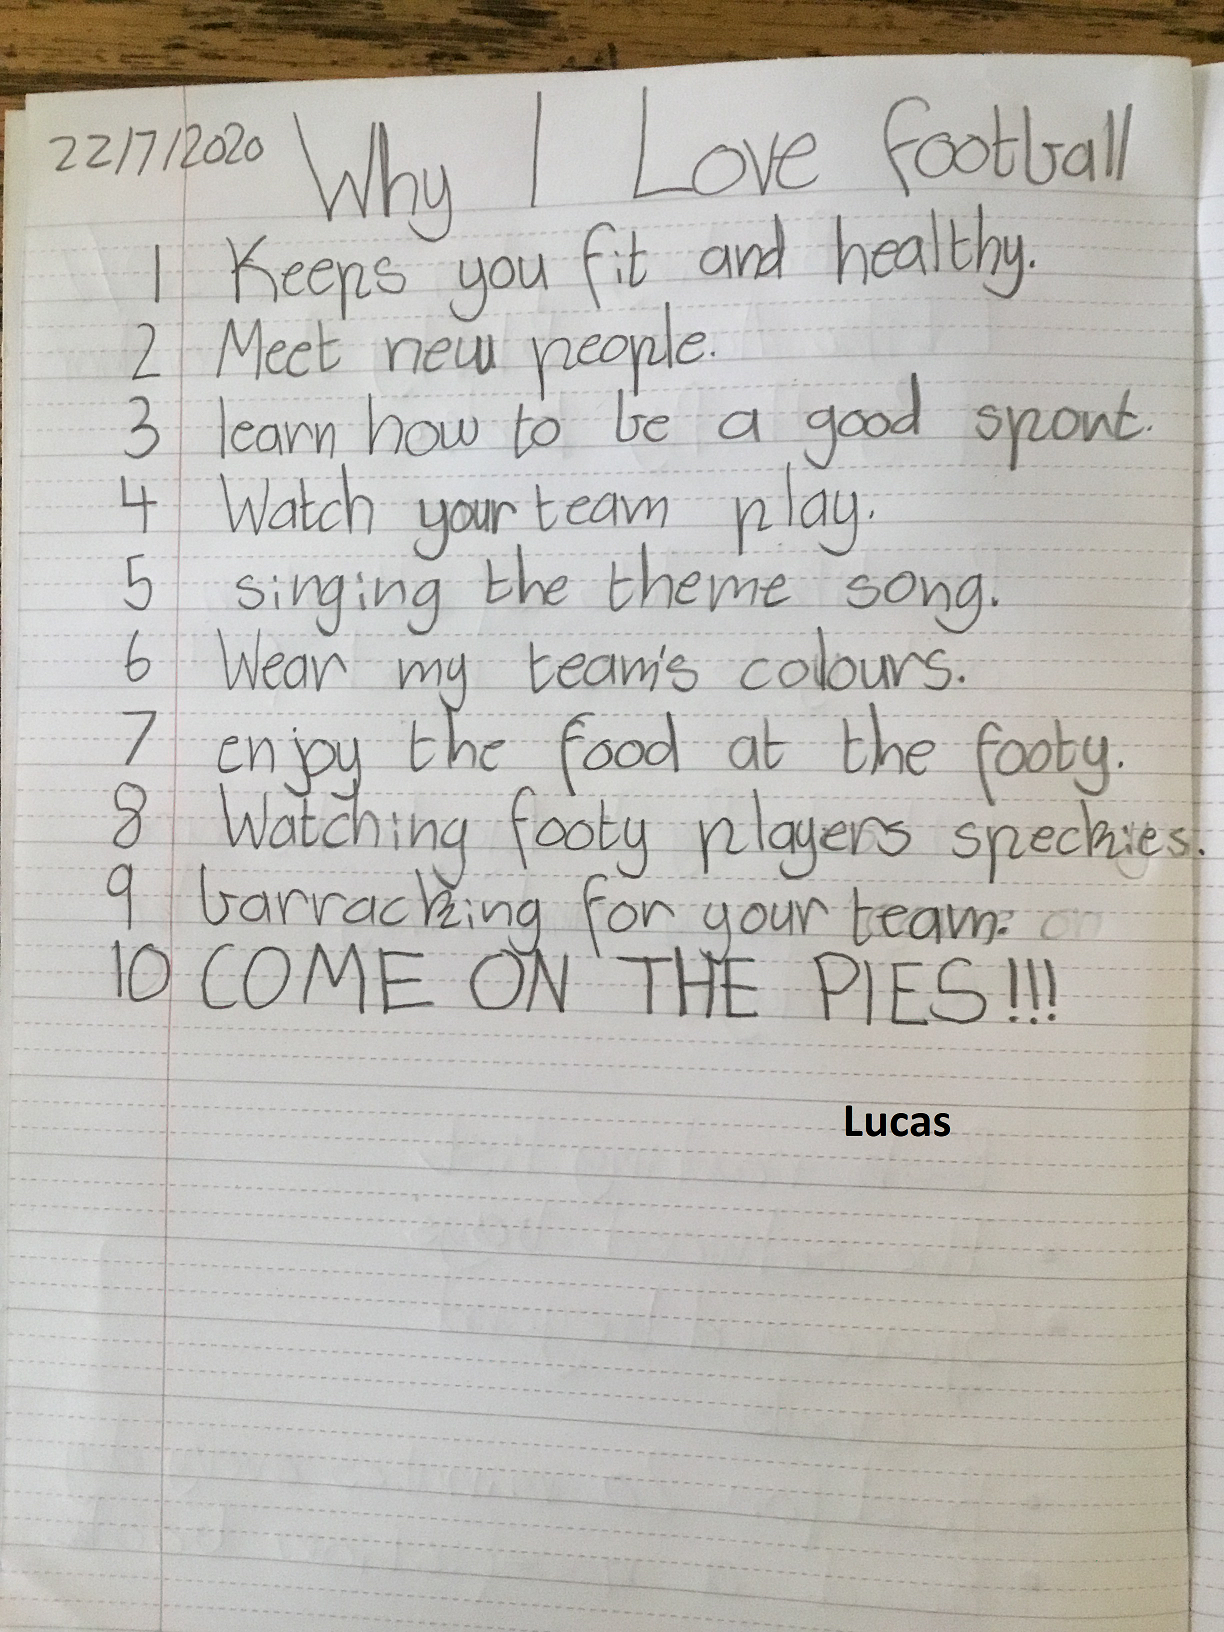 22/7/2020 Why I Love football
1 Keeps you fit and healthy.
2 Meet new people.
3 learn how to be a good sport.
4 Watch your team play.
5 singing the theme song.
6 Wear my team's colours.
7 enjoy the food at the footy.
8 Watching footy players speckies.
9 barracking for your team. on
10 COME ON THE PIES!!!
Lucas